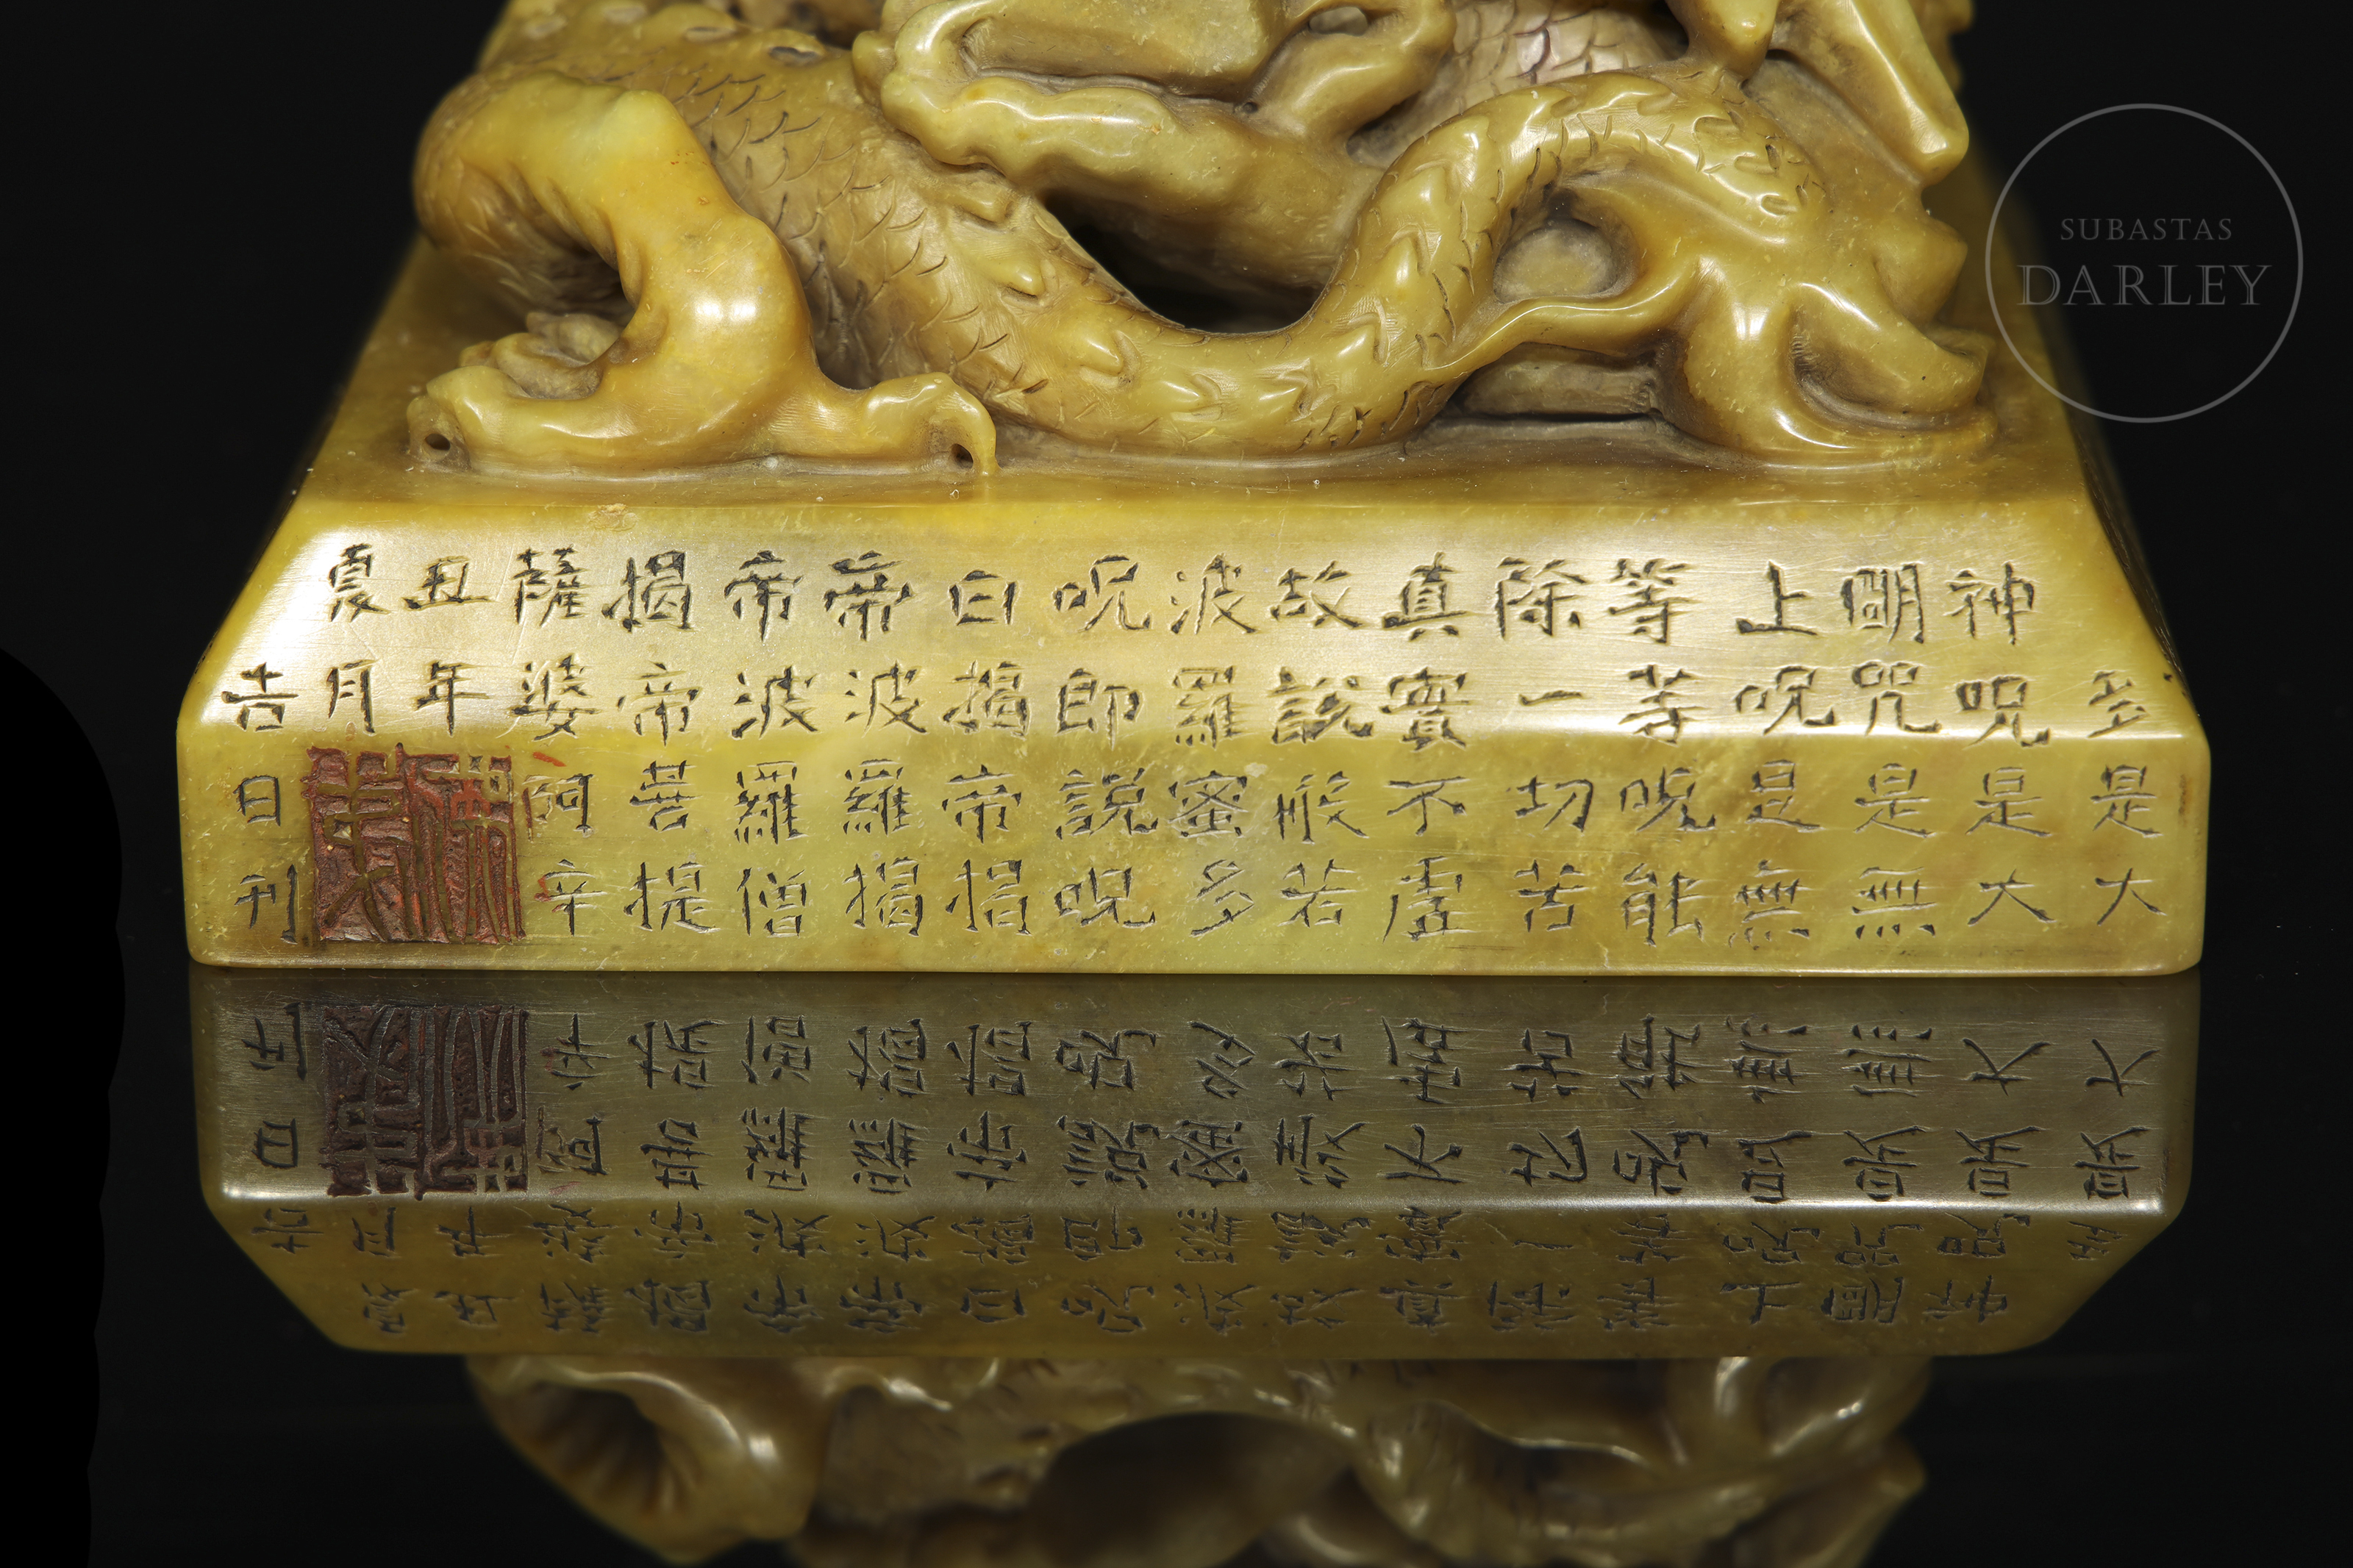 多是大
神呪是大
明咒是無
上呪是無
等等呪能
除一切苦
真實不虛
故說般若
波羅蜜多
呪即說呪
曰揭帝揭
帝波羅揭
帝波羅僧
揭帝菩提
薩婆訶辛
丑年
夏月
吉日刊
SUBASTAS
DARLEY